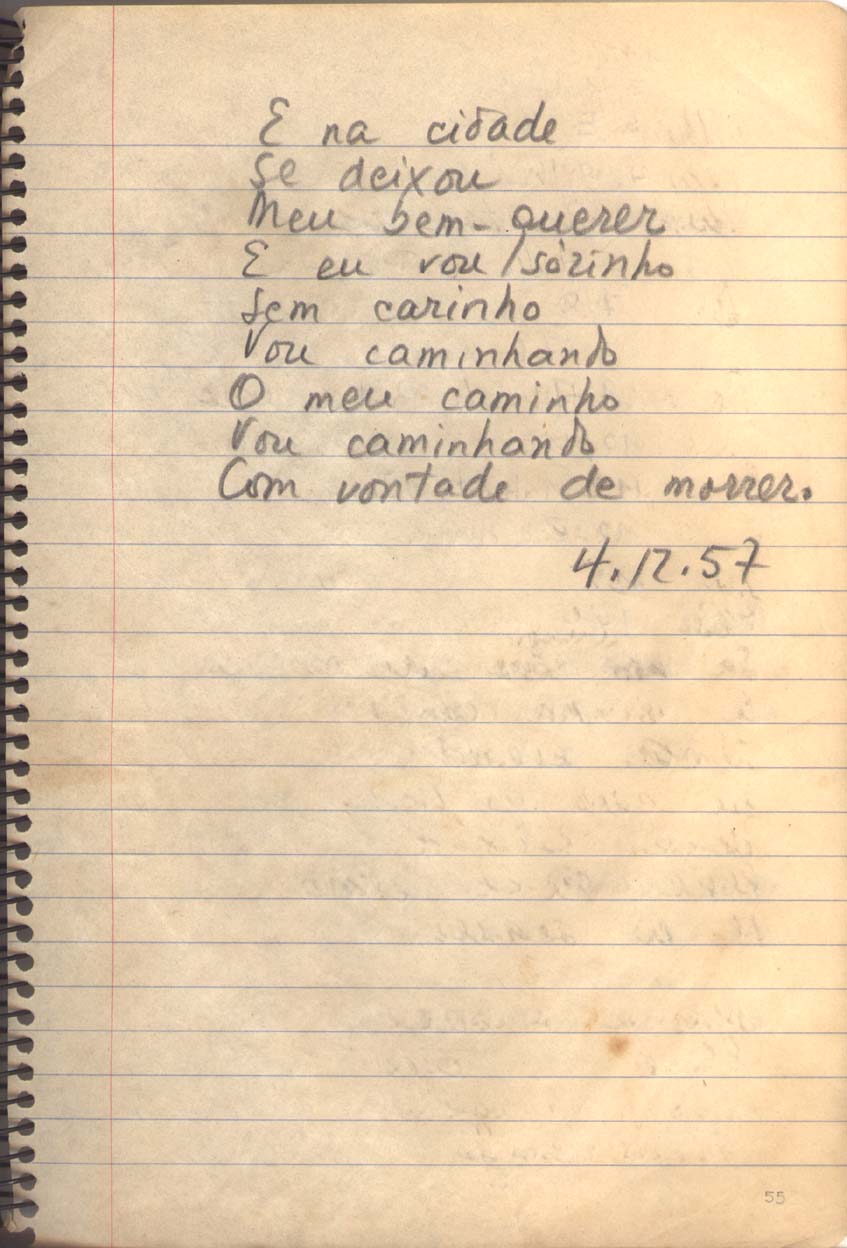 E na cidade
Se deixou
Meu bem-querer
E eu vou/sòzinho
Sem carinho
Vou caminhando
O meu caminho
Vou caminhando
Com vontade de morrer.
4.12.57
55